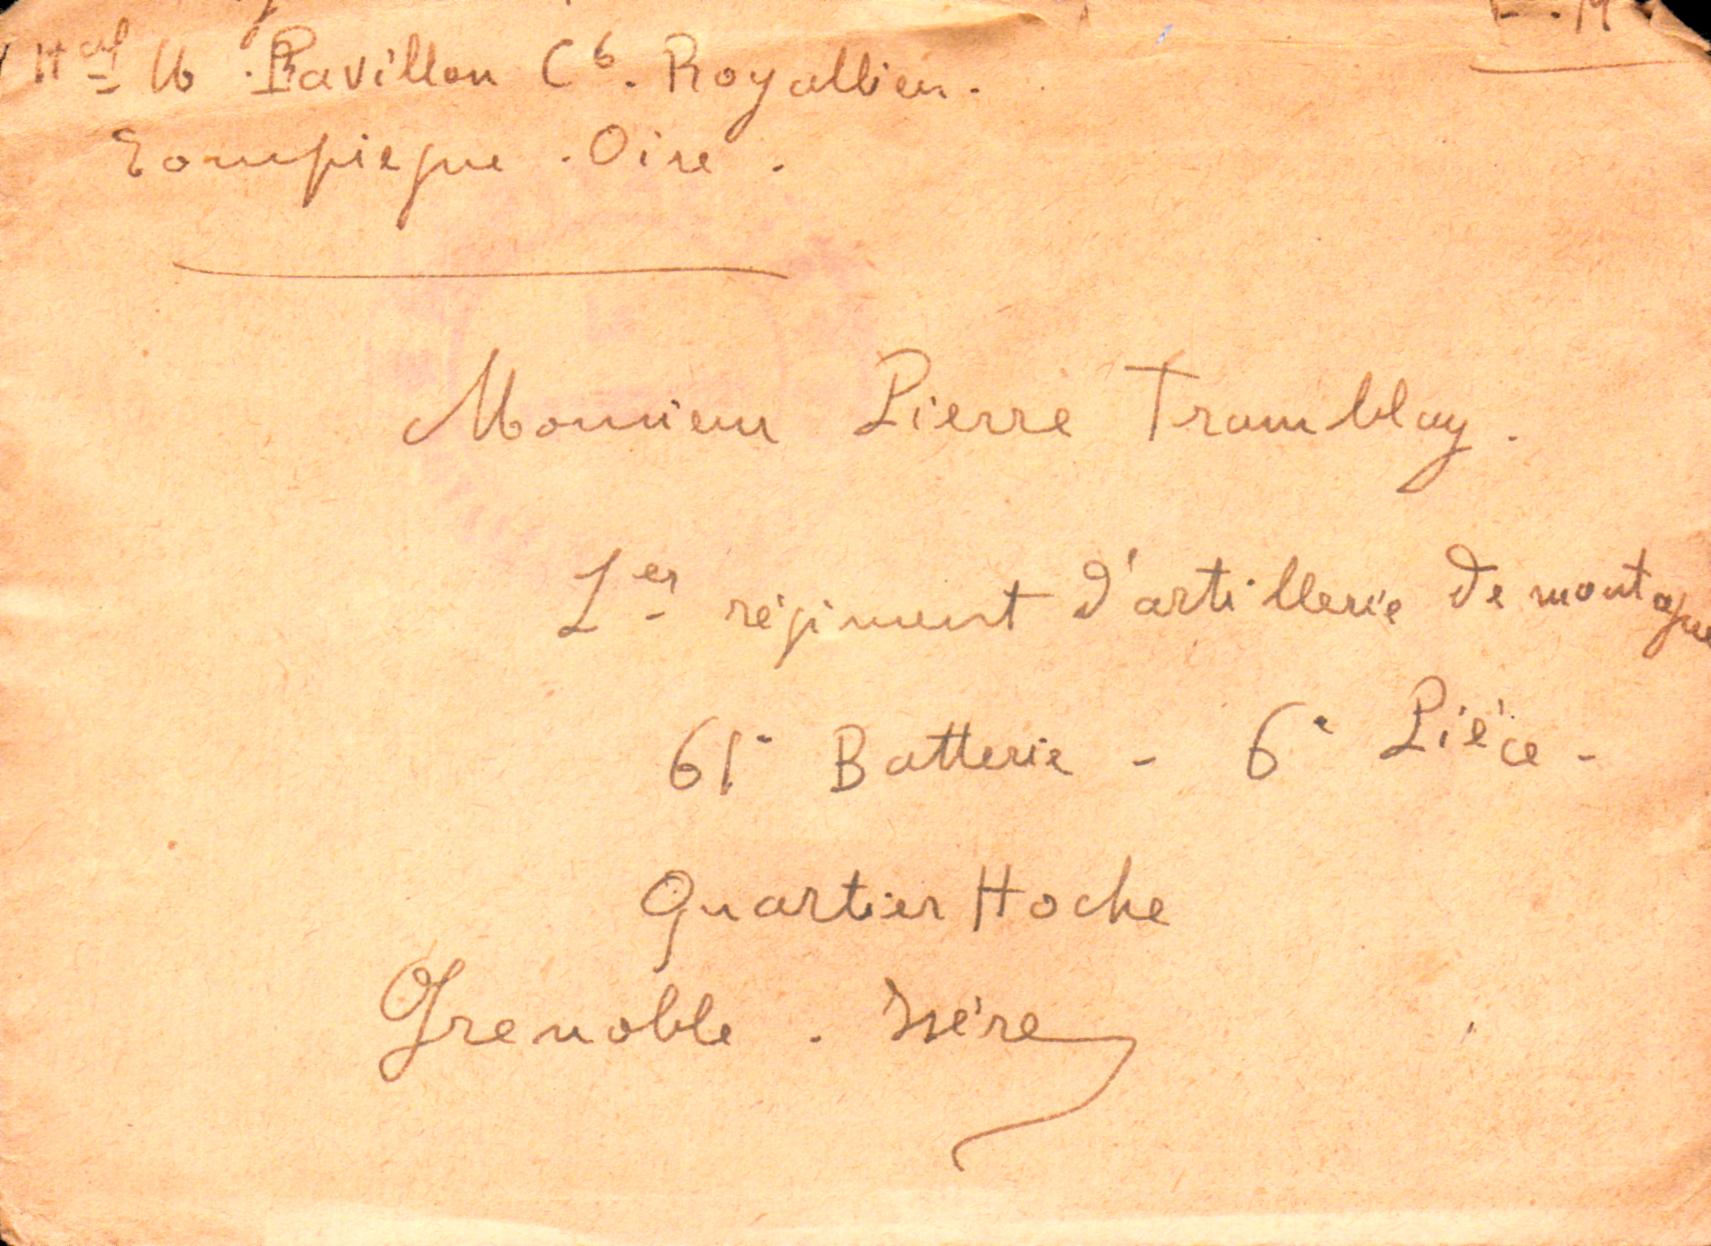 Pavillon C6. Royallieu.
Compiegne. Oise.
Monsieur Pierre Tramblay.
1er régiment d'artillerie de montagne
61e Batterie - 6e Pièce -
Quartier Hoche
Grenoble. Isère